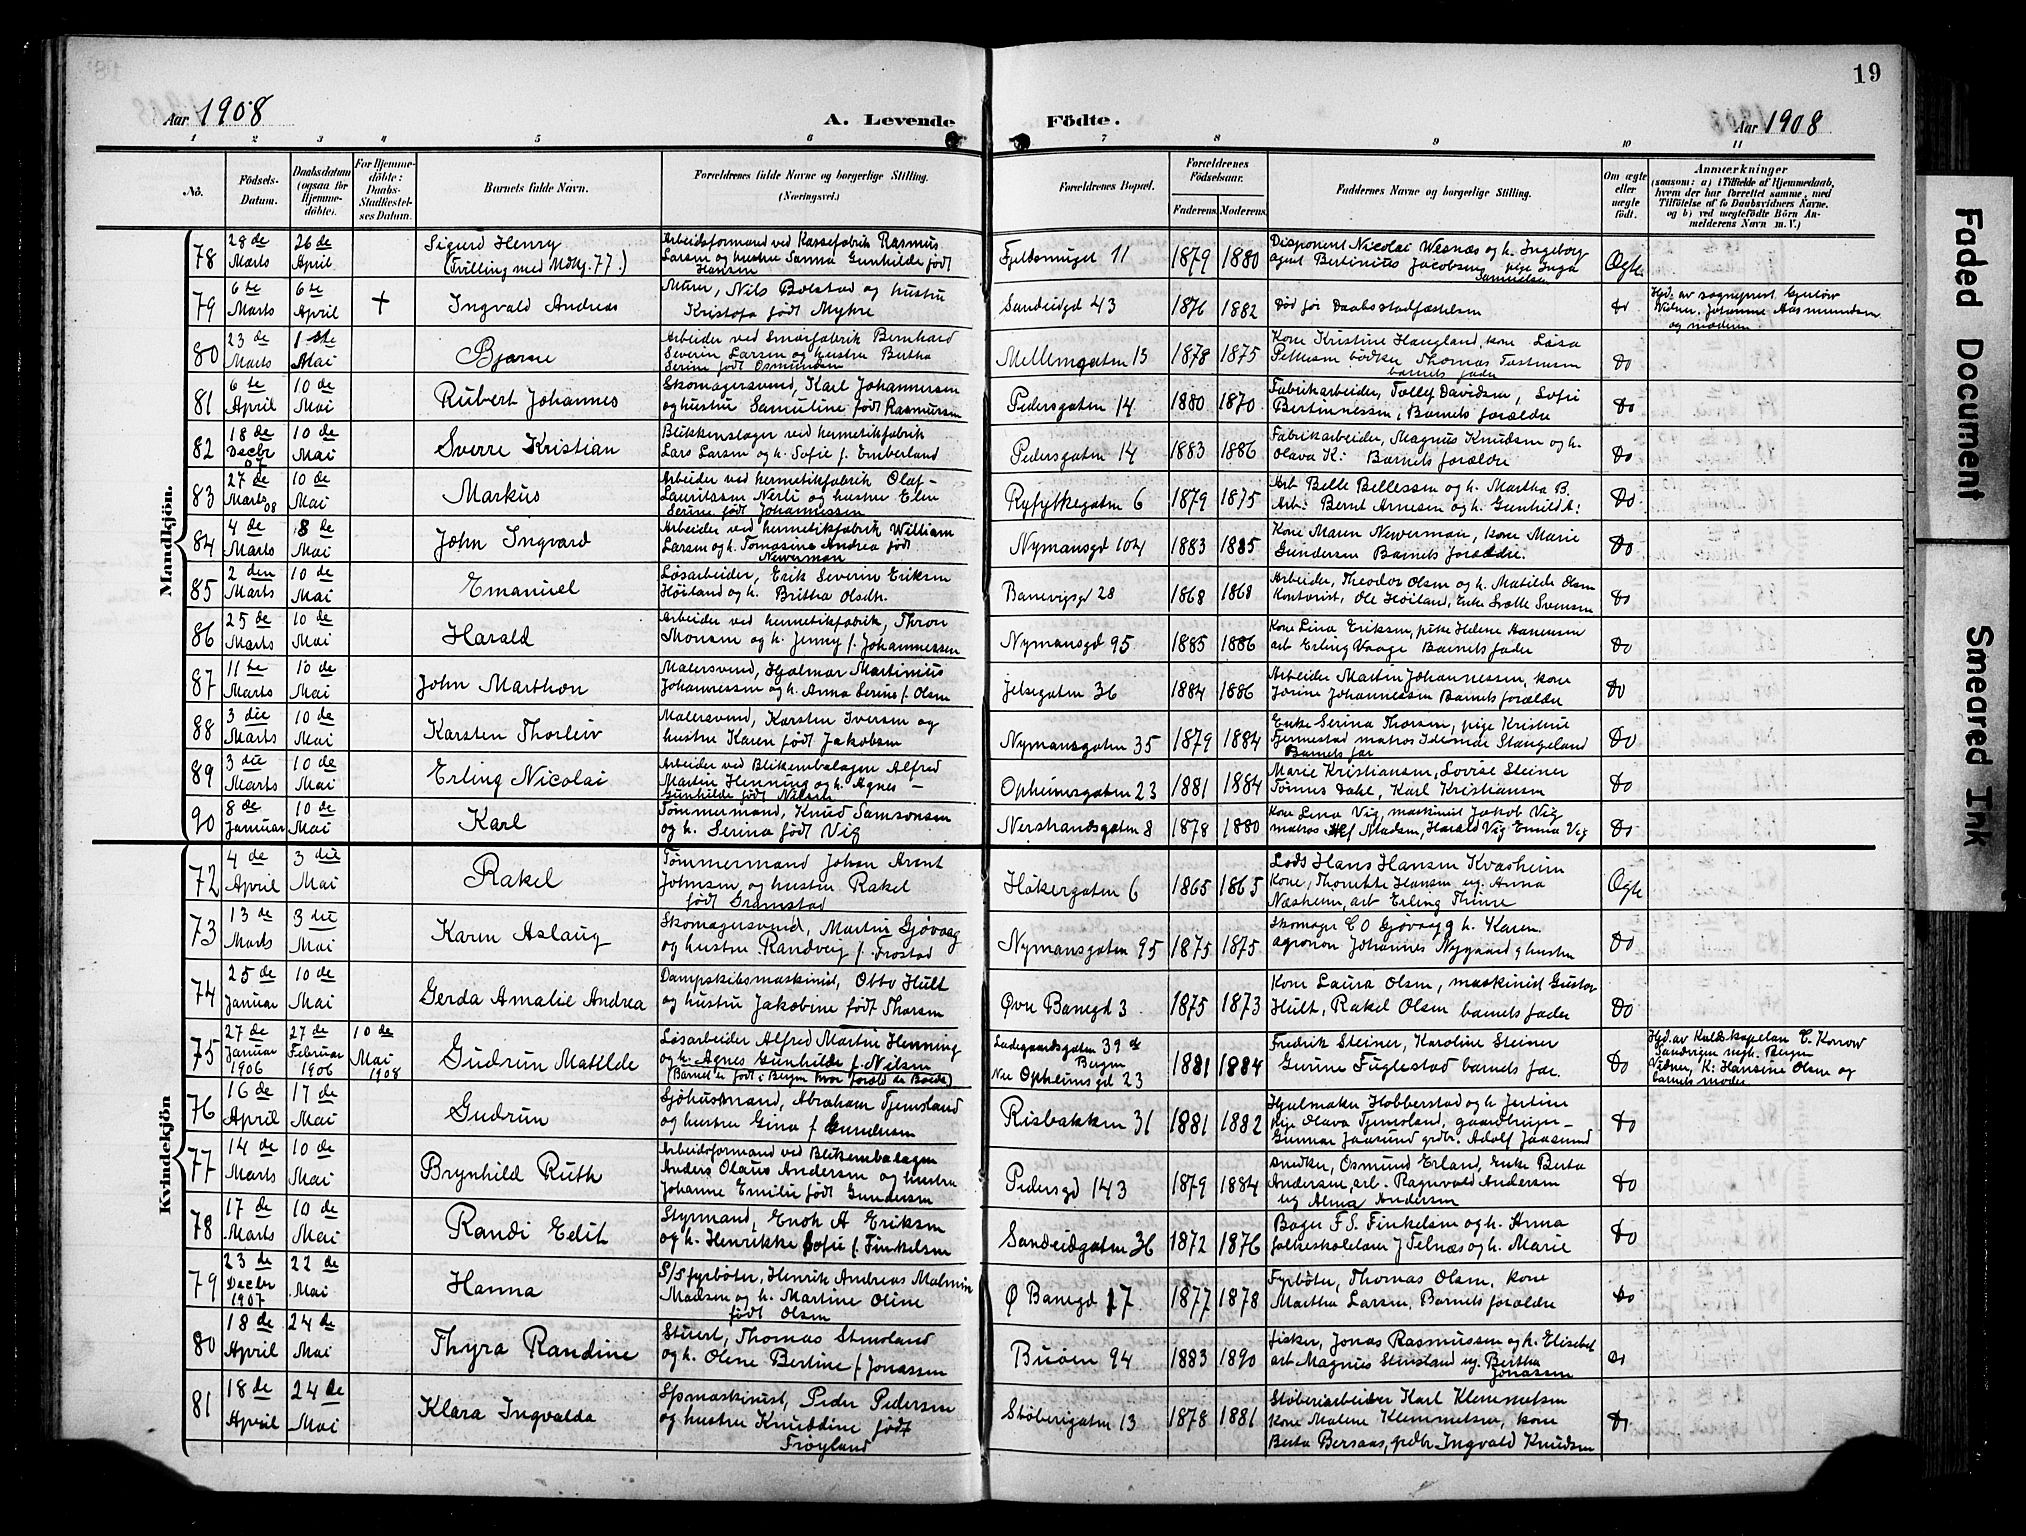 19
Aar 1908
A. Levende
Födte.
Aar 1908
1 2 3 4 5 6 7 8 9 10 11
No.
Födsels-Datum.
Daabsdatum (ogsaa for Hjemme-döbte).
For Hjemme-döbte: Daabs-Stadfæstel-ses Datum.
Barnets fulde Navn.
Forældrenes fulde Navne og borgerlige Stilling. (Næringsvei.)
Forældrenes Bopæl.
Forældrenes Födselsaar.
Faderens. Moderens.
Faddernes Navne og borgerlige Stilling.
Om ægte eller uægte födt.
Anmærkninger
(saasom: a) i Tilfælde af Hjemmedaab, hvem der har forrettet samme, med Tilföielse af to Daabsvidners Navne. og b) ved uægtefödte Börn An-melderens Navn m. V.)
Mandkjön.
78 28de Marts 26de April Sigurd Henry (Trilling med Mdkj. 77.) Arbeidsformand ved Kassefabrik Rasmus Larsen og hustru Sanna Gunhilde født Hansen Fjeldsmuget 11 1879 1880 Disponent Nicolai Wesnæs og h. Ingeborg agent Bertinius Jacobsen, pige Inga Samuelsen Ægte
79 6te Marts 6te April + Ingvald Andreas Murer, Nils Bolstad og hustru Kristofa født Myhre Sandeidgd 43 1876 1882 Død før Daabsstadfæstelsen Do Hjd. av sogneprest Gjerløw Vidner. Johanne Aasmundsen og moderen
80 23de Marts 1ste Mai Bjarne Arbeider ved Smørfabrik Bernhard Severin Larsen og hustru Bertha Serine født Osmundsen Mellemgaten 13 1878 1875 Kone Kristine Haugland, kone Lovisa Pettersen bødker Thomas Tastensen barnets fader Do
81 6te April 10de Mai Rubert Johannes Skomagersvend, Karl Johannesen og hustru Samuline født Rasmussen Pedersgaten 14 1880 1870 Fabrikarbeider, Tollef Davidsen, Sofie Bertinnessen, Barnets forældre Do
82 18de Decbr 07 10de Mai Sverre Kristian Blikkenslager ved hermetikfabrik Lars Larsen og h. Sofie f. Emberland Pedersgaten 14 1883 1886 Fabrikarbeider, Magnus Knudsen og h. Olava K: Barnets forældre Do
83 27de Marts 08 10de Mai Markus Arbeider ved hermetikfabrik Olaf Lauritssen Nerli og hustru Elen Serine født Johannessen Ryfylkegaten 6 1879 1875 Arb Belle Bellessen og h. Martha B. Arb: Bernt Arnesen og h. Gunhild A: Do
84 4de Marts 8de Mai John Ingvard Arbeider ved hermetikfabrik William Larsen og h. Tomasine Andrea født Newerman Nymansgd 104 1883 1885 Kone Maren Newerman, kone Marie Gundersen Barnets forældre. Do
85 2den Marts 10de Mai Emanuel Løsarbeider, Erik Severin Eriksen Høiland og h. Britha Olsdtr. Banevigsgd 28 1868 1868 Arbeider, Theodor Olsen og h. Matilde Olsen Kontorist, Ole Høiland, Enke Svensen Do
86 25de Marts 10de Mai Harald Arbeider ved hermetikfabrik, Thron Monsen og h. Jenny f. Johannessen Nymansgd 95 1885 1886 Kone Lina Eriksen, pike Helene Hanensen arb Erling Vaage Barnets fader Do
87 11te Marts 10de Mai John Marthon Malersvend, Hjalmar Martinius Johannessen og h. Anna Serine f. Olsen Jelsegaten 36 1884 1886 Arbeider Martin Johannessen, kone Jorine Johannessen Barnets forældre Do
88 3die Marts 10de Mai Karsten Thorleiv Malersvend, Karsten Iversen og hustru Karen født Jakobsen Nymansgaten 35 1879 1884 Enke Serina Thorsen, pige Kristine Fjermestad matros Stangeland Barnets far Do
89 3die Marts 10de Mai Erling Nicolai Arbeider ved Blikembalagen Alfred Martin Henning og h. Agnes Gunhilde født Nilsen Opheimsgaten 23 1881 1884 Marie Kristiansen, Lovise Steiner Tønnes Dahl, Karl Kristiansen Do
90 8de Januar 10de Mai Karl Tømmermand, Knud Samsonsen og h. Serina født Vig Nerstrandsgaten 8 1878 1880 Kone Lina Vig, maskinist Jakob Vig matros Alf Madsen, Harald Vig Emma Vig Do
Kvindekjön
72 4de April 3die Mai Rakel Tømmermand Johan Arent Johnsen og hustru Rakel født Gramstad Høkergaten 6 1865 1865 Lods Hans Hansen Kvasheim Kone, Thomtte Hansen ug. Anna Næsheim, arb Erling Thime Ægte
73 13de Marts 3die Mai Karen Aslaug Skomagersvend, Martin Gjøvaag og hustru Randveig f. Frostad Nymansgaten 95 1875 1875 Skomager C O Gjøvaag g h. Karen. agronom Johannes Nygaard g hustru Do
74 25de Januar 10de Mai Gerda Amalie Andrea Dampskibsmaskinist, Otto Hult og hustru Jakobine født Thorsen Øvre Banegd 3 1875 1873 Kone Laura Olsen, maskinist Gustav Hult, Rakel Olsen barnets fader Do
75 27de Januar 1906 27de Februar 1906 10de Mai 1908 Gudrun Matilde Løsarbeider Alfred Martin Henning og h. Agnes Gunhilde f. Nilsen (Barnet er født i Bergen hvor foræld. da Boede) Ladegaardsgaten 39 Bergen Nu Opheimsgd 23 1881 1884 Fredrik Steiner, Karoline Steiner Gurine Fuglestad barnets far. Do Hjd. av Kaldskapelan C. Korvow Sandvigen megh. Bergen Vidner, K: Hansine Olsen og barnets moder
76 16de April 17de Mai Gudrun Sjøhusmand, Abraham Tjemsland og hustru Gina f Gundersen Risbakken 31 1881 1882 Hjulmaker Hobberstad og h. Jertine Pige Olava Tjemsland, gaardbruger Gunnar Jaasund grdbr. Adolf Jaasund Do
77 14de Marts 10de Mai Brynhild Ruth Arbeidsformand ved Blikembalagen Anders Olaus Andersen og hustru Johanne Emilie født Gundersen Pedersgd 143 1879 1884 Snedker, Osmund Erland, Enke Berta Andersen, arb. Ragnvald Andersen ug Alma Andersen Do
78 17de Marts 10de Mai Randi Edit Styrmand, Enok A Eriksen og h. Henrikke Sofie f. Finkelsen Sandeidgaten 36 1872 1876 Bager F. S. Finkelsen og h. Anna folkeskolelærer J Telnæs og h. Marie Do
79 23de Decbr 1907 22de Mai Hanna S/S fyrbøter, Henrik Andreas Malmin Madsen og h. Martine Oline født Olsen Ø Banegd 17 1877 1878 Fyrbøter, Thomas Olsen, kone Martha Larsen, Barnets forældre Do
80 18de April 24de Mai Thyra Randine Stuert, Thomas Stensland og h. Olene Bertine f Jonassen Buøen 94 1883 1890 Fisker, Jonas Rasmussen og h. Elisebet arb Magnus Stensland ug. Bertha Jonassen Do
81 18de April 24de Mai Klara Ingvalda S/smaskinist, Peder Pedersen og hustru Knuddine født Frøyland Støberigaten 13 1878 1881 Støberiarbeider Karl Klemmetsen Kone Malene Klemmetsen, kone Berta Bersaas, grdbr Ingvald Knudsen Do
Faded Document
Smeared Ink